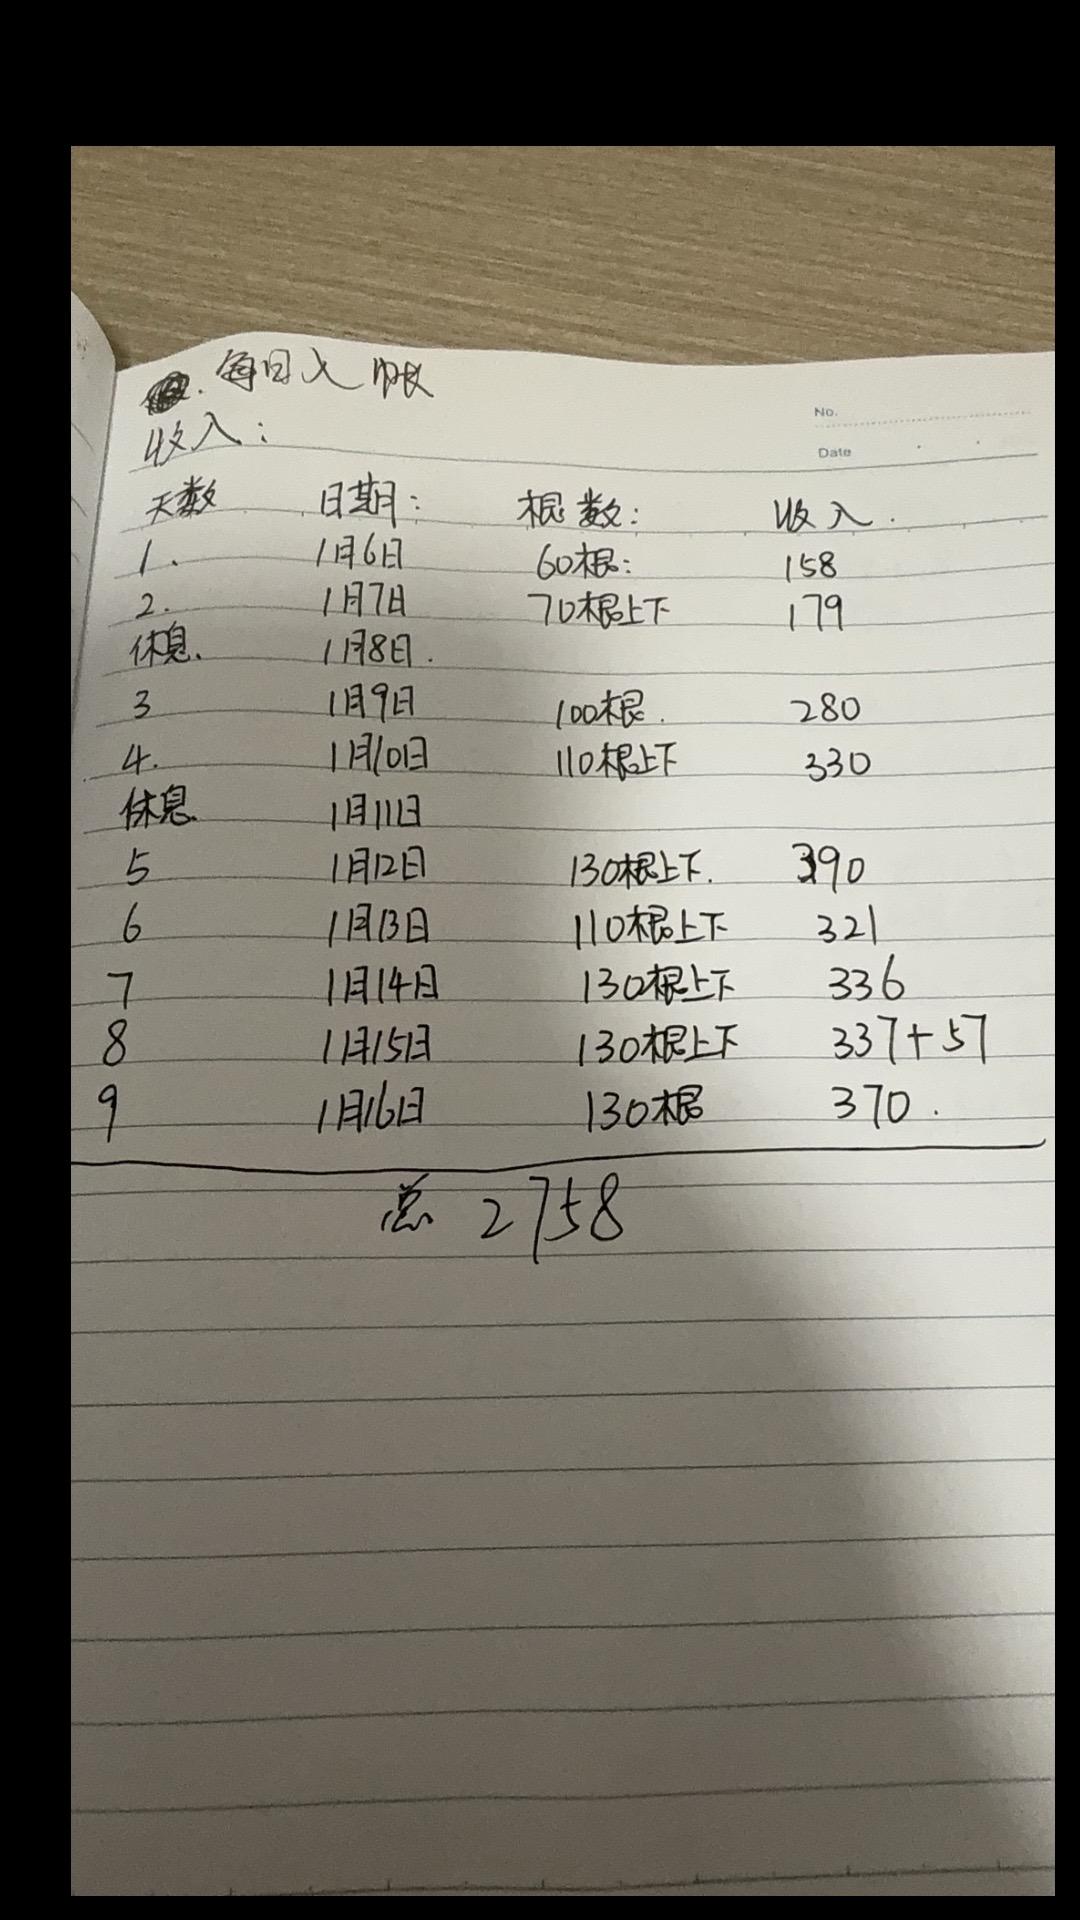 每日入帐
No.
收入：
Date
天数 日期： 根数： 收入.
1. 1月6日 60根： 158
2. 1月7日 70根上下 179
休息. 1月8日.
3 1月9日 100根. 280
4. 1月10日 110根上下 330
休息. 1月11日
5 1月12日 130根上下. 390
6 1月13日 110根上下 321
7 1月14日 130根上下 336
8 1月15日 130根上下 337+57
9 1月16日 130根 370.
总 2758